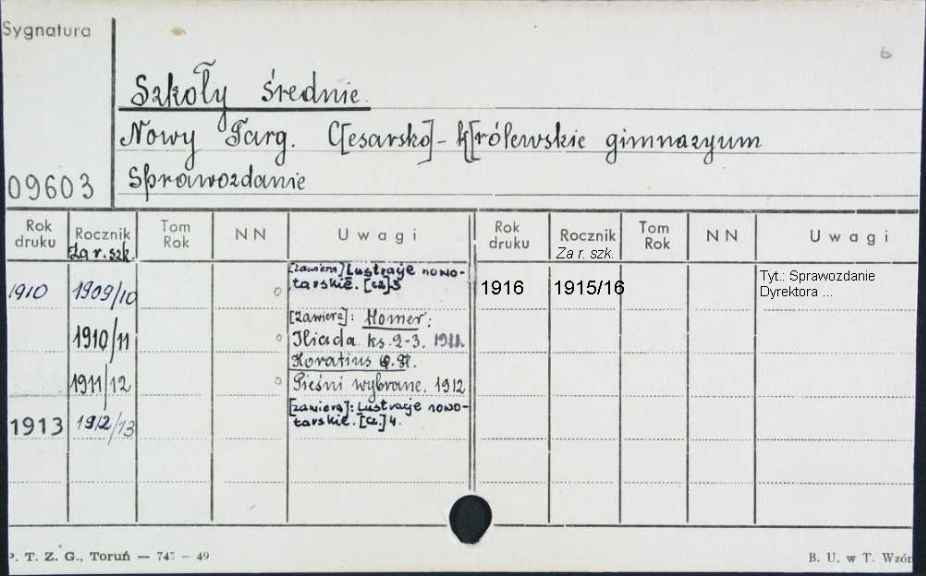 Sygnatura
6
Szkoły średnie.
Nowy Targ. C[esarsko]-k[rólewskie gimnazyum
Sprawozdanie
09603
Rok druku Rocznik Za r. szk. Tom Rok NN Uwagi Rok druku Rocznik Za r. szk. Tom Rok NN Uwagi
1910 1909/10 [zawiera] Lustracje nowo-
tarskie. [cz.] 3
1916 1915/16 Tyt.: Sprawozdanie
Dyrektora ...
1910/11 [zawiera]: Homer:
Iliada ks. 2-3. 1911.
Horatius Q. Fl.
1911/12 Pieśni wybrane. 1912
1913 1912/13 [zawiera]: Lustracje nowo-
tarskie. [cz.] 4.
P. T. Z. G., Toruń — 747 - 49 B. U. w T. Wzór